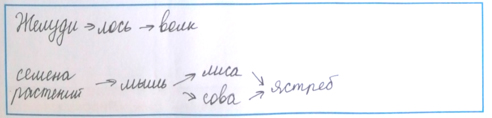 Желуди → лось → волк
семена → мышь → лиса ↘ ястреб
растений ↘ сова →